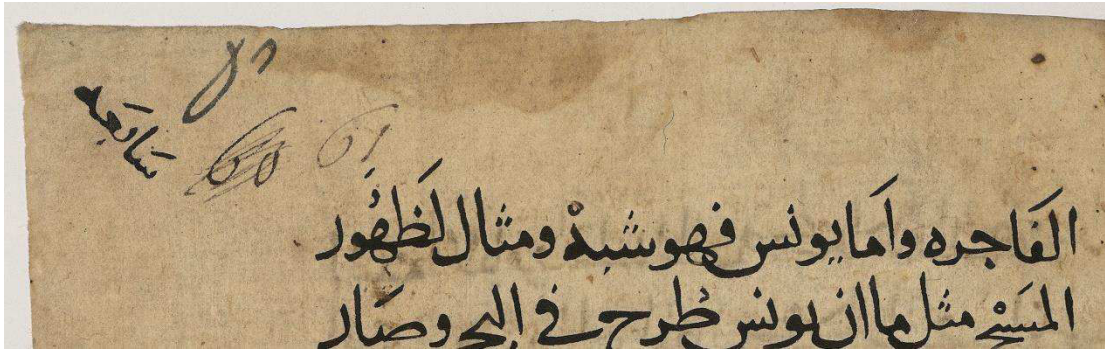 سابعه
60 61
الفَاجره وامَا يونس فهو شبهْ ومثال لظهُور
المسَيْح مثل ما ان يونس طُرح في البحر وصَار